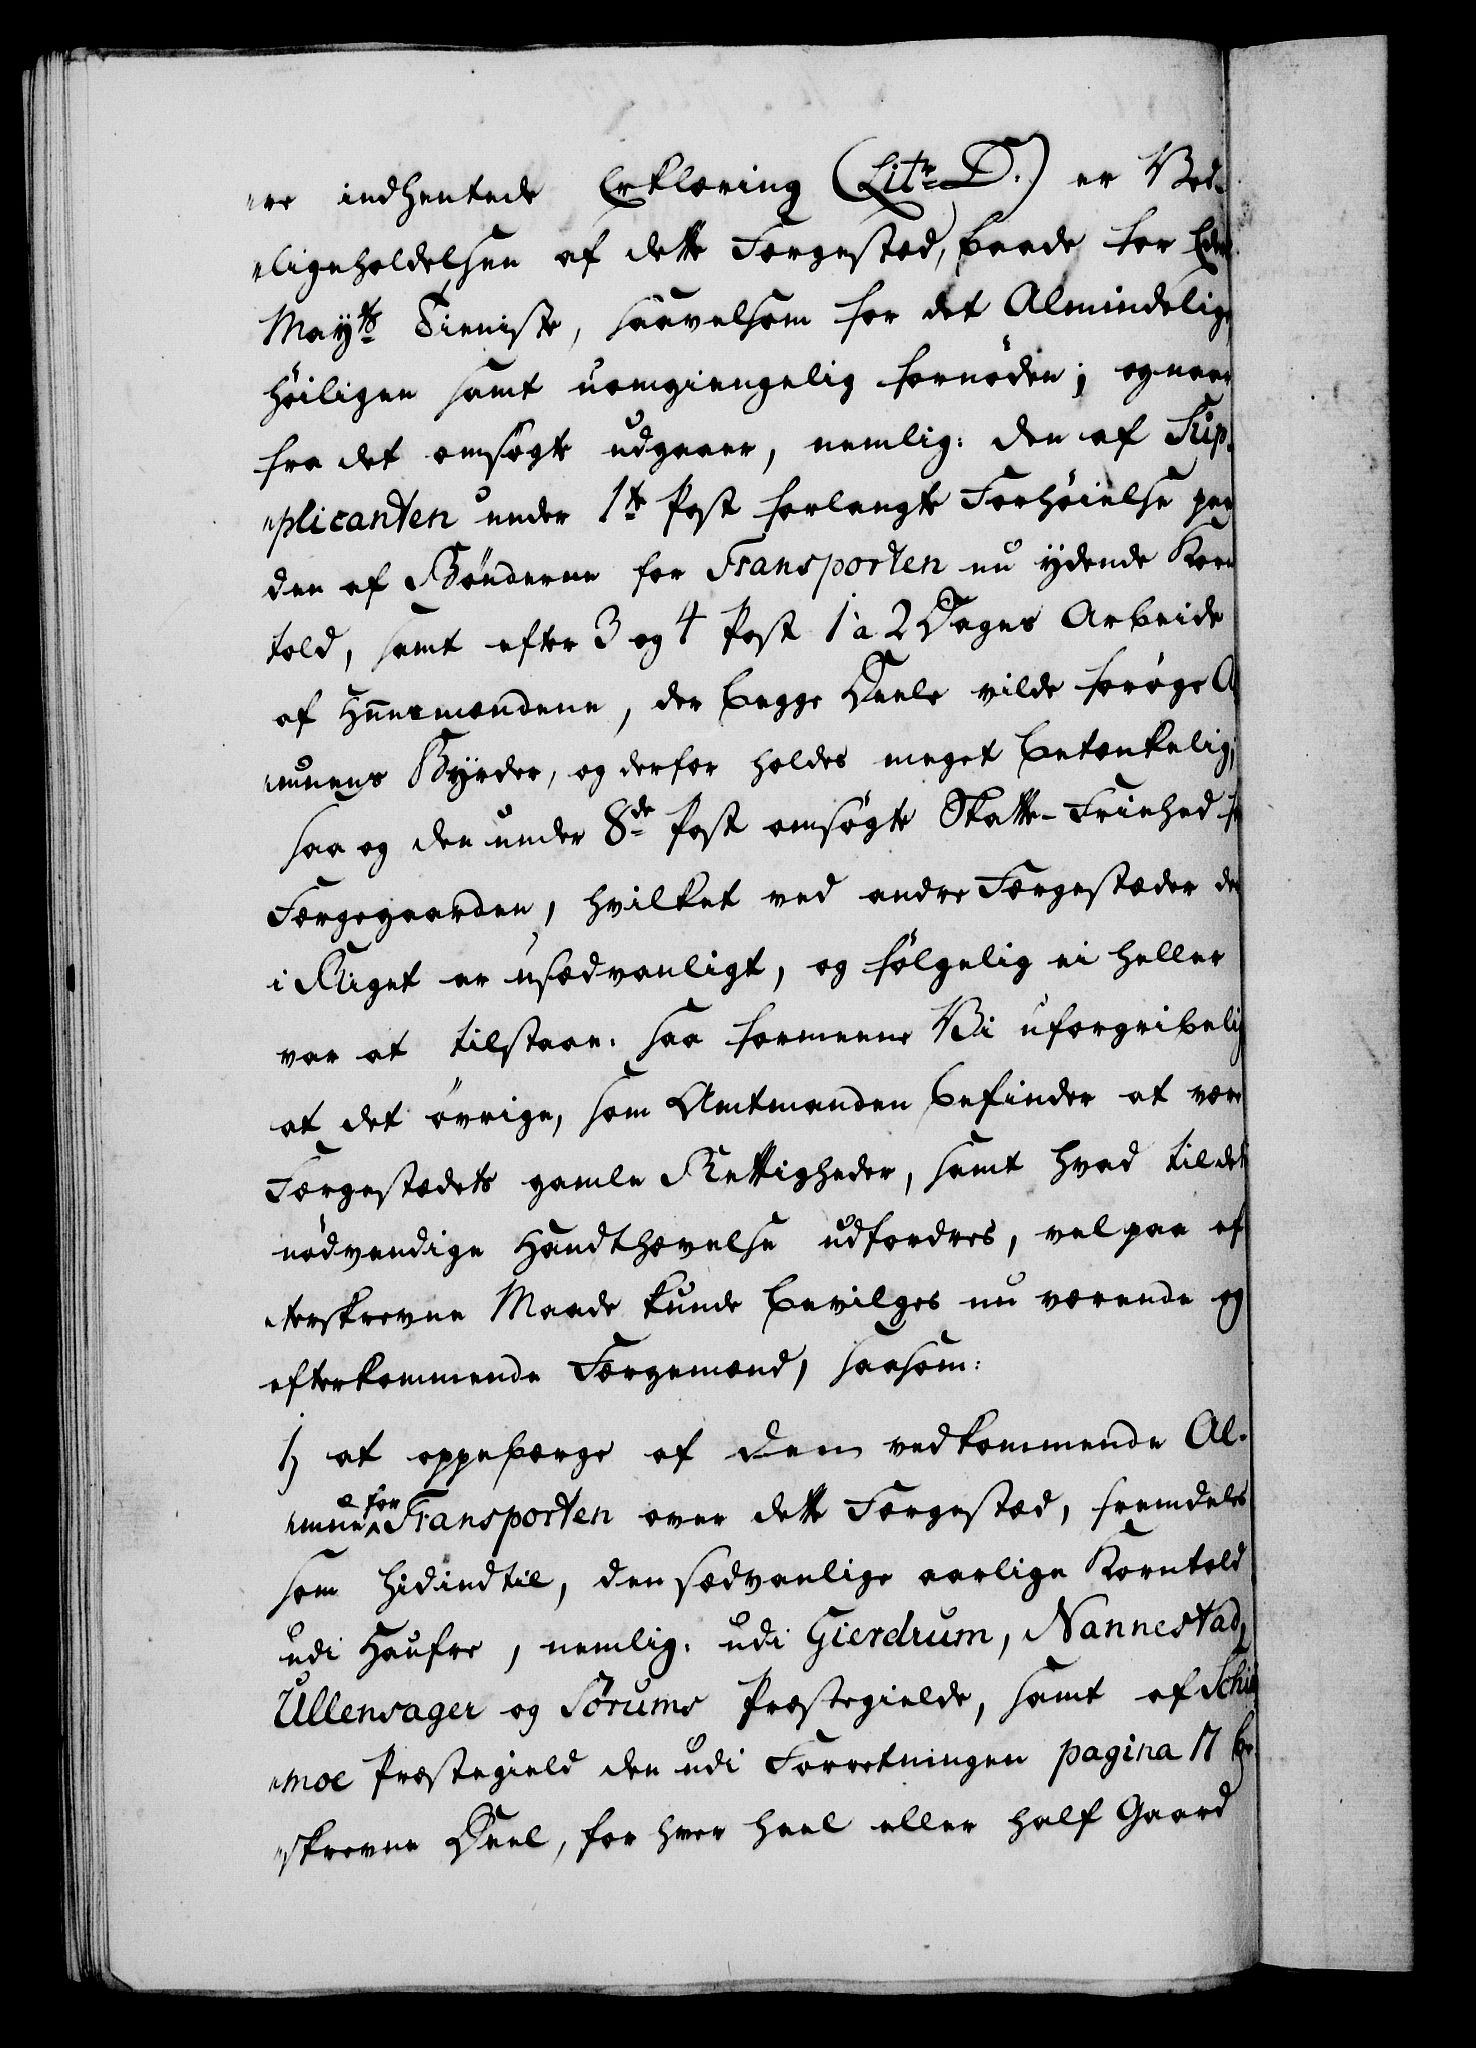 „re indhentede Erklæring (Litr D.) er Ved-
„ligeholdelsen af dette Færgestæd, baade for Eders
Mayts Tieniste, saavelsom for det Almindelige
höiligen samt uomgiengelig fornöden; og naar
fra det omsøgte udgaaer, nemlig: den af Sup-
„plicanten under 1te Post forlangte Forhöielse paa
den af Bönderne for Transporten nu ydende Korn
told, samt efter 3 og 4 Post 1 à 2 Dages Arbeide
af Huusmændene, der begge Deele vilde forøge Al-
„muens Byrder, og derfor holdes meget betænkelig;
saa og den under 8de Post omsøgte Skatte-Friehed for
Færgegaarden, hvilket ved andre Færgestæder der
i Riget er usædvanligt, og fölgelig ei heller
var at tilstaae. saa formeene Vi uforgribelig
at det övrige, som Amtmanden befinder at være
Færgestædets gamle Rettigheder, samt hvad til dets
nödvendige Handthævelse udfordres, vel paa ef-
„terskrevne Maade kunde bevilges nu værende og
efterkommende Færgemænd, saasom:
1, at oppebærge af den vedkommende Al-
„mue for Transporten over dette Færgestæd, fremdeles
som hidindtil, den sædvanlige aarlige Korntold
udi Haufre, nemlig: udi Gierdrum, Nannestad,
Ullensager og Sørums Præstegielde, samt af Schie-
„moe Præstegield den udi Forretningen pagina 17 be-
„skrevne Deel, for hver heel eller half Gaard